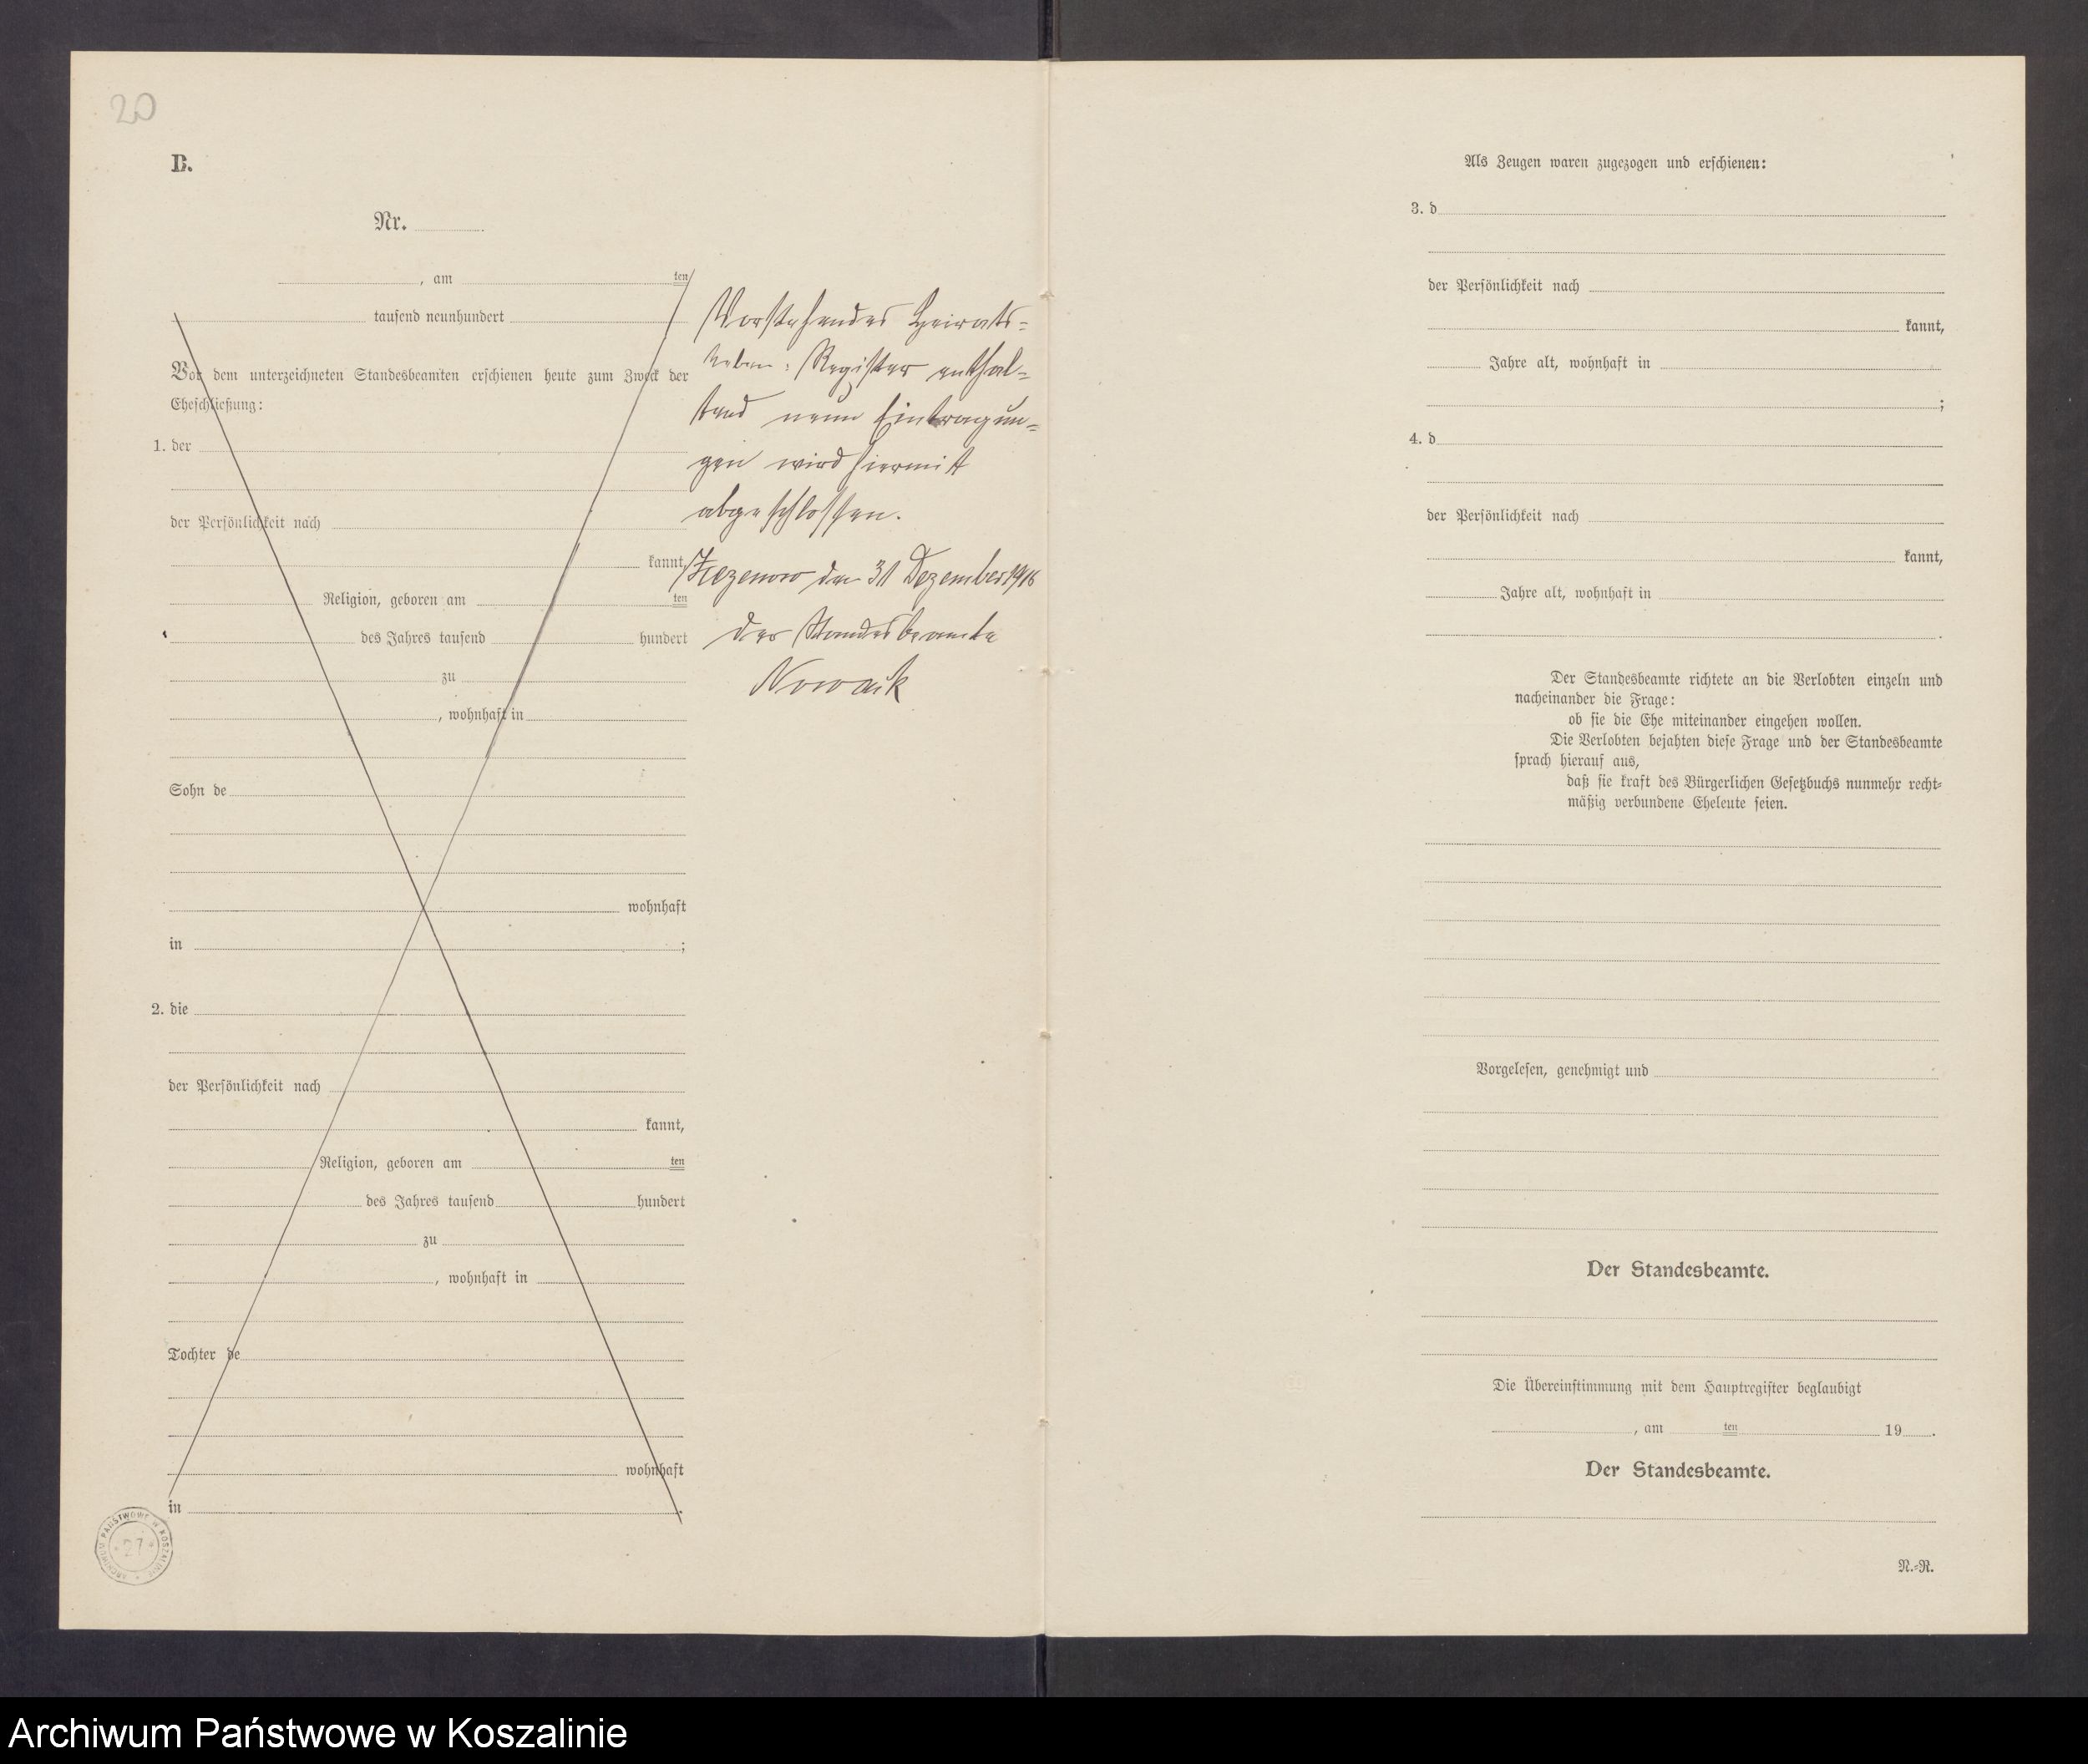 20
B.
Nr.
, am ten
tausend neunhundert
Vor dem unterzeichneten Standesbeamten erschienen heute zum Zweck der
Eheschließung:
1. der
der Persönlichkeit nach
kannt,
Religion, geboren am ten
des Jahres tausend hundert
zu
, wohnhaft in
Sohn de
wohnhaft
in ;
2. die
der Persönlichkeit nach
kannt,
Religion, geboren am ten
des Jahres tausend hundert
zu
, wohnhaft in
Tochter de
wohnhaft
in .
Vorstehendes Heirats-
Neben-Register enthal-
tend neun Eintragun-
gen wird hiermit
abgeschlossen.
Zezenow den 31 Dezember 1916
Der Standesbeamte
Nowack
ARCHIWUM PAŃSTWOWE W KOSZALINIE
27
Als Zeugen waren zugezogen und erschienen:
3. d
der Persönlichkeit nach
kannt,
Jahre alt, wohnhaft in
;
4. d
der Persönlichkeit nach
kannt,
Jahre alt, wohnhaft in
.
Der Standesbeamte richtete an die Verlobten einzeln und
nacheinander die Frage:
ob sie die Ehe miteinander eingehen wollen.
Die Verlobten bejahten diese Frage und der Standesbeamte
sprach hierauf aus,
daß sie kraft des Bürgerlichen Gesetzbuchs nunmehr recht-
mäßig verbundene Eheleute seien.
Vorgelesen, genehmigt und
Der Standesbeamte.
Die Übereinstimmung mit dem Hauptregister beglaubigt
, am ten 19 .
Der Standesbeamte.
N.-R.
Archiwum Państwowe w Koszalinie